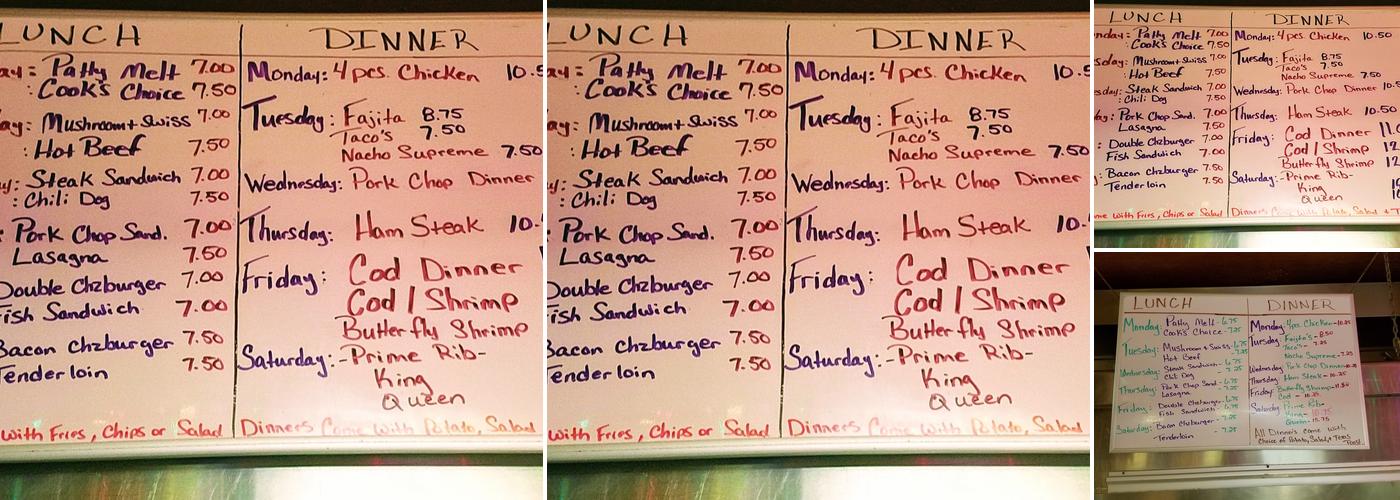 LUNCH
Patty Melt 7.00
: Cook's Choice 7.50
Mushroom + Swiss 7.00
: Hot Beef 7.50
: Steak Sandwich 7.00
: Chili Dog 7.50
: Pork Chop Sand. 7.00
Lasagna 7.50
Double Chzburger 7.00
Fish Sandwich 7.00
Bacon Chzburger 7.50
Tenderloin 7.50
with Fries, Chips or Salad
DINNER
Monday: 4 pcs. Chicken
Tuesday: Fajita 8.75
Taco's 7.50
Nacho Supreme 7.50
Wednesday: Pork Chop Dinner
Thursday: Ham Steak
Friday: Cod Dinner
Cod / Shrimp
Butterfly Shrimp
Saturday: -Prime Rib-
King
Queen
Dinners Come with Potato, Salad
LUNCH
Patty Melt 7.00
: Cook's Choice 7.50
Mushroom + Swiss 7.00
: Hot Beef 7.50
: Steak Sandwich 7.00
: Chili Dog 7.50
: Pork Chop Sand. 7.00
Lasagna 7.50
Double Chzburger 7.00
Fish Sandwich 7.00
Bacon Chzburger 7.50
Tenderloin 7.50
with Fries, Chips or Salad
DINNER
Monday: 4 pcs. Chicken
Tuesday: Fajita 8.75
Taco's 7.50
Nacho Supreme 7.50
Wednesday: Pork Chop Dinner
Thursday: Ham Steak
Friday: Cod Dinner
Cod / Shrimp
Butterfly Shrimp
Saturday: -Prime Rib-
King
Queen
Dinners Come with Potato, Salad
LUNCH
Patty Melt 7.00
: Cook's Choice 7.50
Mushroom + Swiss 7.00
: Hot Beef 7.50
: Steak Sandwich 7.00
: Chili Dog 7.50
: Pork Chop Sand. 7.00
Lasagna 7.50
: Double Chzburger 7.00
Fish Sandwich 7.00
: Bacon Chzburger 7.50
Tenderloin 7.50
with Fries, Chips or Salad
DINNER
Monday: 4 pcs. Chicken 10.50
Tuesday: Fajita 8.75
Taco's 7.50
Nacho Supreme 7.50
Wednesday: Pork Chop Dinner
Thursday: Ham Steak 10.50
Friday: Cod Dinner
Cod / Shrimp
Butterfly Shrimp
Saturday: -Prime Rib-
King
Queen
Dinners Come with Potato, Salad
LUNCH
Monday: Patty Melt - 6.75
Cook's Choice - 7.25
Tuesday: Mushroom + Swiss - 6.75
Hot Beef - 7.25
Wednesday: Steak Sandwich - 6.75
Chili Dog - 7.25
Thursday: Pork Chop Sand - 6.75
Lasagna - 7.25
Friday: Double Chzburger - 6.75
Fish Sandwich - 6.75
Saturday: Bacon Chzburger - 7.25
- Tenderloin
DINNER
Monday: 4pc. Chicken - 10.25
Tuesday: Fajita's - 8.50
Taco's - 7.25
Nacho Supreme - 7.25
Wednesday: Pork Chop Dinner - 10.25
Thursday: Ham Steak - 10.25
Friday: Butterfly Shrimp
Cod
Saturday: Prime Rib -
King
Queen
All Dinners come with
Choice of Potato, Salad, + Texas
Toast